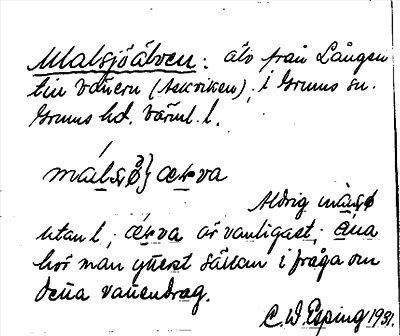 Malsjöälven: älv från Lången
till Vänern (Åskviken), i Grums sn.
Grums hd. Värml. l.
målsø} æva
Aldrig måsø
utan l; æva är vanligast; 
hör man ytterst sällan i fråga om
detta vattendrag.
C. W. Esping 1931.